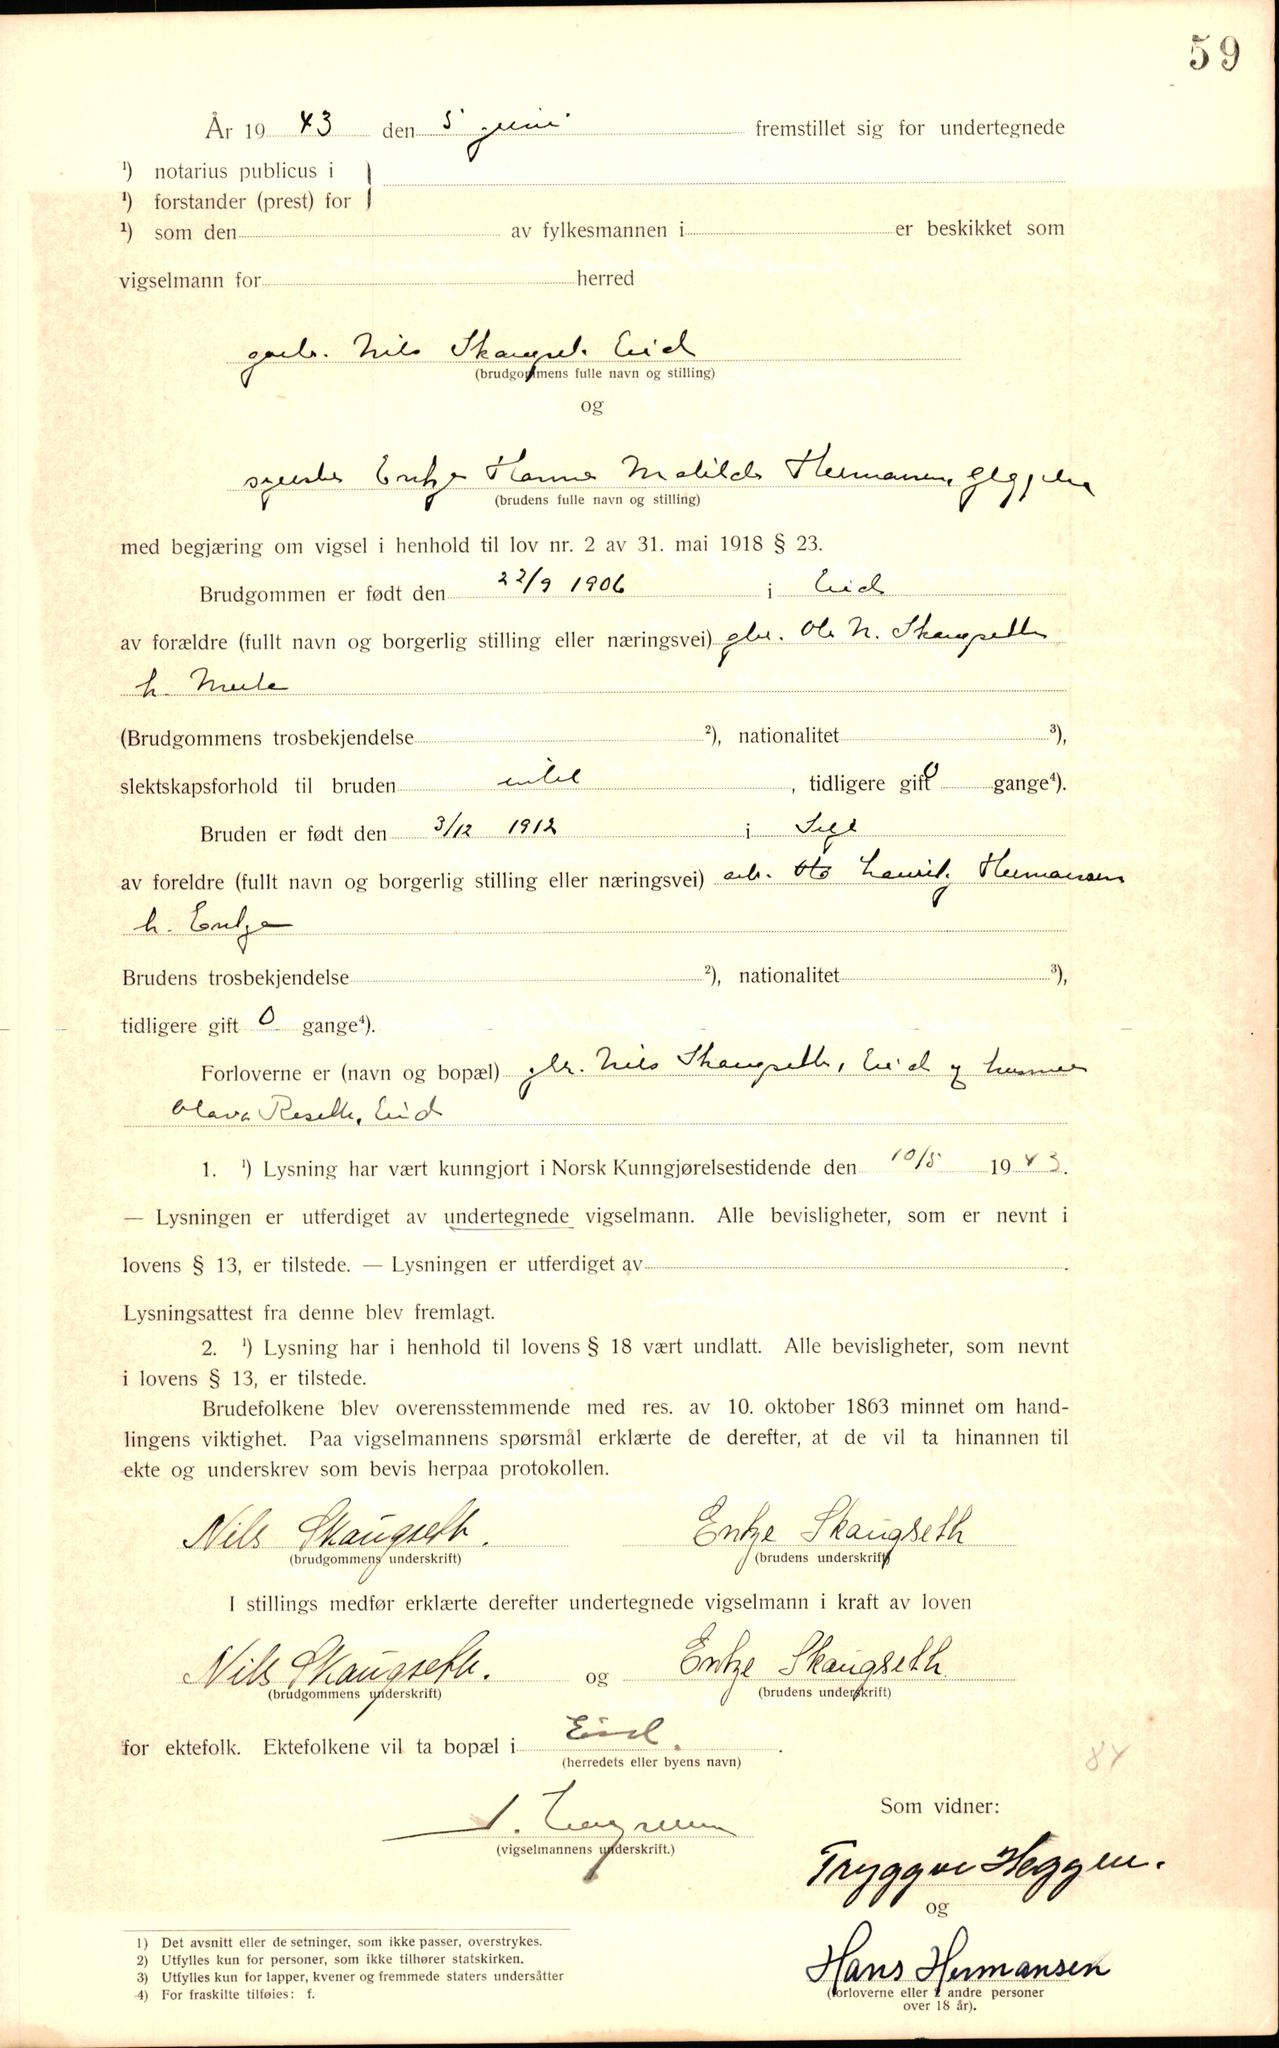 59
År 19 43 den 5 juni fremstillet sig for undertegnede
¹) notarius publicus i
¹) forstander (prest) for
¹) som den av fylkesmannen i er beskikket som
vigselmann for herred
Nils Skaugset. Eid
(brudgommens fulle navn og stilling)
og
Entze Hanna Matilde Hermansen,
(brudens fulle navn og stilling)
med begjæring om vigsel i henhold til lov nr. 2 av 31. mai 1918 § 23.
Brudgommen er født den 22/9 1906 i Eid
av forældre (fullt navn og borgerlig stilling eller næringsvei) gbr. Ole N. Skaugseth
h.
(Brudgommens trosbekjendelse ²), nationalitet ³),
slektskapsforhold til bruden intet, tidligere gift 0 gange⁴).
Bruden er født den 3/12 1912 i
av foreldre (fullt navn og borgerlig stilling eller næringsvei) arb. Hermansen
h. Entze
Brudens trosbekjendelse ²), nationalitet ³),
tidligere gift 0 gange⁴).
Forloverne er (navn og bopæl) gbr. Nils Skaugseth, Eid og
Olava Reseth, Eid
1. ¹) Lysning har vært kunngjort i Norsk Kunngjørelsestidende den 10/5 1943.
— Lysningen er utferdiget av undertegnede vigselmann. Alle bevisligheter, som er nevnt i
lovens § 13, er tilstede. — Lysningen er utferdiget av .
Lysningsattest fra denne blev fremlagt.
2. ¹) Lysning har i henhold til lovens § 18 vært undlatt. Alle bevisligheter, som nevnt
i lovens § 13, er tilstede.
Brudefolkene blev overensstemmende med res. av 10. oktober 1863 minnet om hand-
lingens viktighet. Paa vigselmannens spørsmål erklærte de derefter, at de vil ta hinannen til
ekte og underskrev som bevis herpaa protokollen.
Nils Skaugseth. Entze Skaugseth
(brudgommens underskrift) (brudens underskrift)
I stillings medfør erklærte derefter undertegnede vigselmann i kraft av loven
Nils Skaugseth. og Entze Skaugseth
(brudgommens underskrift) (brudens underskrift)
for ektefolk. Ektefolkene vil ta bopæl i Eid.
(herredets eller byens navn)
84
Som vidner:
(vigselmannens underskrift.)
Tryggve Heggen.
og
Hans Hermansen
(forloverne eller 2 andre personer
over 18 år).
1) Det avsnitt eller de setninger, som ikke passer, overstrykes.
2) Utfylles kun for personer, som ikke tilhører statskirken.
3) Utfylles kun for lapper, kvener og fremmede staters undersåtter
4) For fraskilte tilføies: f.